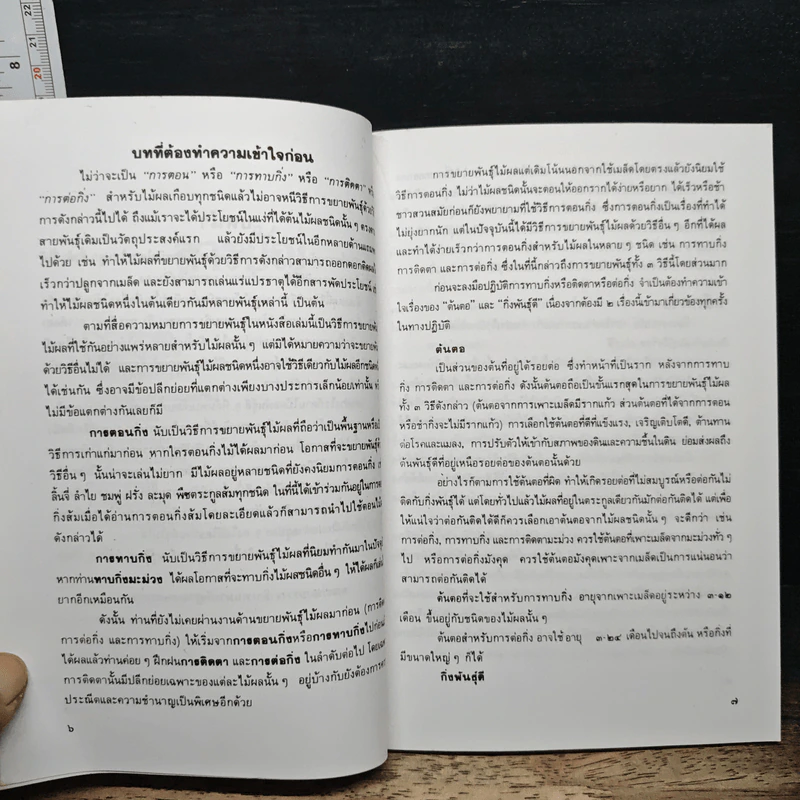 22
21
8
20
บทที่ต้องทำความเข้าใจก่อน
ไม่ว่าจะเป็น "การตอน" หรือ "การทาบกิ่ง" หรือ "การติดตา"
"การต่อกิ่ง" สำหรับไม้ผลเกือบทุกชนิดแล้วไม่อาจหนีวิธีการขยายพันธุ์ด้วย
การดังกล่าวนี้ไปได้ ถึงแม้เราจะได้ประโยชน์ในแง่ที่ได้ต้นไม้ผลชนิดนั้น ๆ ตรง
สายพันธุ์เดิมเป็นวัตถุประสงค์แรก แล้วยังมีประโยชน์ในอีกหลายด้าน
ไปด้วย เช่น ทำให้ไม้ผลที่ขยายพันธุ์ด้วยวิธีการดังกล่าวสามารถออกดอกติดผล
เร็วกว่าปลูกจากเมล็ด และยังสามารถเล่นแร่แปรธาตุได้อีกสารพัดประโยชน์
ทำให้ไม้ผลชนิดหนึ่งในต้นเดียวกันมีหลายพันธุ์เหล่านี้ เป็นต้น
ตามที่สื่อความหมายการขยายพันธุ์ในหนังสือเล่มนี้เป็นวิธีการขยายพันธุ์
ไม้ผลที่ใช้กันอย่างแพร่หลายสำหรับไม้ผลนั้น ๆ แต่มิได้หมายความว่าจะขยายพันธุ์
ด้วยวิธีอื่นไม่ได้ และการขยายพันธุ์ไม้ผลชนิดหนึ่งอาจใช้วิธีเดียวกับไม้ผลอีกชนิด
ได้เช่นกัน ซึ่งอาจมีข้อปลีกย่อยที่แตกต่างเพียงบางประการเล็กน้อยเท่านั้น
ไม่มีข้อแตกต่างกันเลยก็มี
การตอนกิ่ง นับเป็นวิธีการขยายพันธุ์ไม้ผลที่ถือว่าเป็นพื้นฐานหรือ
วิธีการเก่าแก่มาก่อน หากใครตอนกิ่งไม้ได้ผลมาก่อน โอกาสที่จะขยายพันธุ์ด้วย
วิธีอื่น ๆ นั้นน่าจะเล่นไม่ยาก มีไม้ผลอยู่หลายชนิดที่ยังคงนิยมการตอนกิ่ง
ลิ้นจี่ ลำไย ชมพู่ ฝรั่ง ละมุด พืชตระกูลส้มทุกชนิด ในที่นี้ได้เข้าร่วมกันอยู่ในการ
กิ่งส้มเมื่อได้อ่านการตอนกิ่งส้มโดยละเอียดแล้วก็สามารถนำไปใช้ตอนไม้
ดังกล่าวได้
การทาบกิ่ง นับเป็นวิธีการขยายพันธุ์ไม้ผลที่นิยมทำกันมาในปัจ
หากท่านทาบกิ่งมะม่วง ได้ผลโอกาสที่จะทาบกิ่งไม้ผลชนิดอื่น ๆ ให้ได้ผลก็
ยากอีกเหมือนกัน
ดังนั้น ท่านที่ยังไม่เคยผ่านงานด้านขยายพันธุ์ไม้ผลมาก่อน (การติด
การต่อกิ่ง และการทาบกิ่ง) ให้เริ่มจากการตอนกิ่งหรือการทาบกิ่งไปก่อน
ได้ผลแล้วท่านค่อย ๆ ฝึกฝนการติดตา และการต่อกิ่ง ในลำดับต่อไป โดย
การติดตานั้นมีปลีกย่อยเฉพาะของแต่ละไม้ผลนั้น ๆ อยู่บ้างกับยังต้องการ
ประณีตและความชำนาญเป็นพิเศษอีกด้วย
๖
การขยายพันธุ์ไม้ผลแต่เดิมโน้นนอกจากใช้เมล็ดโดยตรงแล้วยังนิยมใช้
วิธีการตอนกิ่ง ไม่ว่าไม้ผลชนิดนั้นจะตอนให้ออกรากได้ง่ายหรือยาก ได้เร็วหรือช้า
ชาวสวนสมัยก่อนก็ยังพยายามที่ใช้วิธีการตอนกิ่ง ซึ่งการตอนกิ่งเป็นเรื่องที่ทำได้
ไม่ยุ่งยากนัก แต่ในปัจจุบันนี้ได้มีวิธีการขยายพันธุ์ไม้ผลด้วยวิธีอื่น ๆ อีกที่ได้ผล
และทำได้ง่ายเร็วกว่าการตอนกิ่งสำหรับไม้ผลในหลาย ๆ ชนิด เช่น การทาบกิ่ง
การติดตา และการต่อกิ่ง ซึ่งในที่นี้กล่าวถึงการขยายพันธุ์ทั้ง ๓ วิธีนี้โดยส่วนมาก
ก่อนจะลงมือปฏิบัติการทาบกิ่งหรือติดตาหรือต่อกิ่ง จำเป็นต้องทำความเข้า
ใจเรื่องของ "ต้นตอ" และ "กิ่งพันธุ์ดี" เนื่องจากต้องมี ๒ เรื่องนี้เข้ามาเกี่ยวข้องทุกครั้ง
ในทางปฏิบัติ
ต้นตอ
เป็นส่วนของต้นที่อยู่ใต้รอยต่อ ซึ่งทำหน้าที่เป็นราก หลังจากการทาบ
กิ่ง การติดตา และการต่อกิ่ง ดังนั้นต้นตอถือเป็นขั้นแรกสุดในการขยายพันธุ์ไม้ผล
ทั้ง ๓ วิธีดังกล่าว (ต้นตอจากการเพาะเมล็ดมีรากแก้ว ส่วนต้นตอที่ได้จากการตอน
หรือชำกิ่งจะไม่มีรากแก้ว) การเลือกใช้ต้นตอที่ดีที่แข็งแรง, เจริญเติบโตดี, ต้านทาน
ต่อโรคและแมลง, การปรับตัวให้เข้ากับสภาพของดินและความชื้นในดิน ย่อมส่งผลถึง
ต้นพันธุ์ดีที่อยู่เหนือรอยต่อของต้นตอนั้นด้วย
อย่างไรก็ตามการใช้ต้นตอที่ผิด ทำให้เกิดรอยต่อที่ไม่สมบูรณ์หรือต่อกันไม่
ติดกับกิ่งพันธุ์ได้ แต่โดยทั่วไปแล้วไม้ผลที่อยู่ในตระกูลเดียวกันมักต่อกันติดได้ แต่เพื่อ
ให้แน่ใจว่าต่อกันติดได้ดีก็ควรเลือกเอาต้นตอจากไม้ผลชนิดนั้น ๆ จะดีกว่า เช่น
การต่อกิ่ง, การทาบกิ่ง และการติดตามะม่วง ควรใช้ต้นตอที่เพาะเมล็ดจากมะม่วงทั่ว ๆ
ไป หรือการต่อกิ่งมังคุด ควรใช้ต้นตอมังคุดเพาะจากเมล็ดเป็นการแน่นอนว่า
สามารถต่อกันติดได้
ต้นตอที่จะใช้สำหรับการทาบกิ่ง อายุจากเพาะเมล็ดอยู่ระหว่าง ๓-๑๒
เดือน ขึ้นอยู่กับชนิดของไม้ผลนั้น ๆ
ต้นตอสำหรับการต่อกิ่ง อาจใช้ อายุ ๓-๒๔ เดือนไปจนถึงต้น หรือกิ่งที่
มีขนาดใหญ่ ๆ ก็ได้
กิ่งพันธุ์ดี
๗